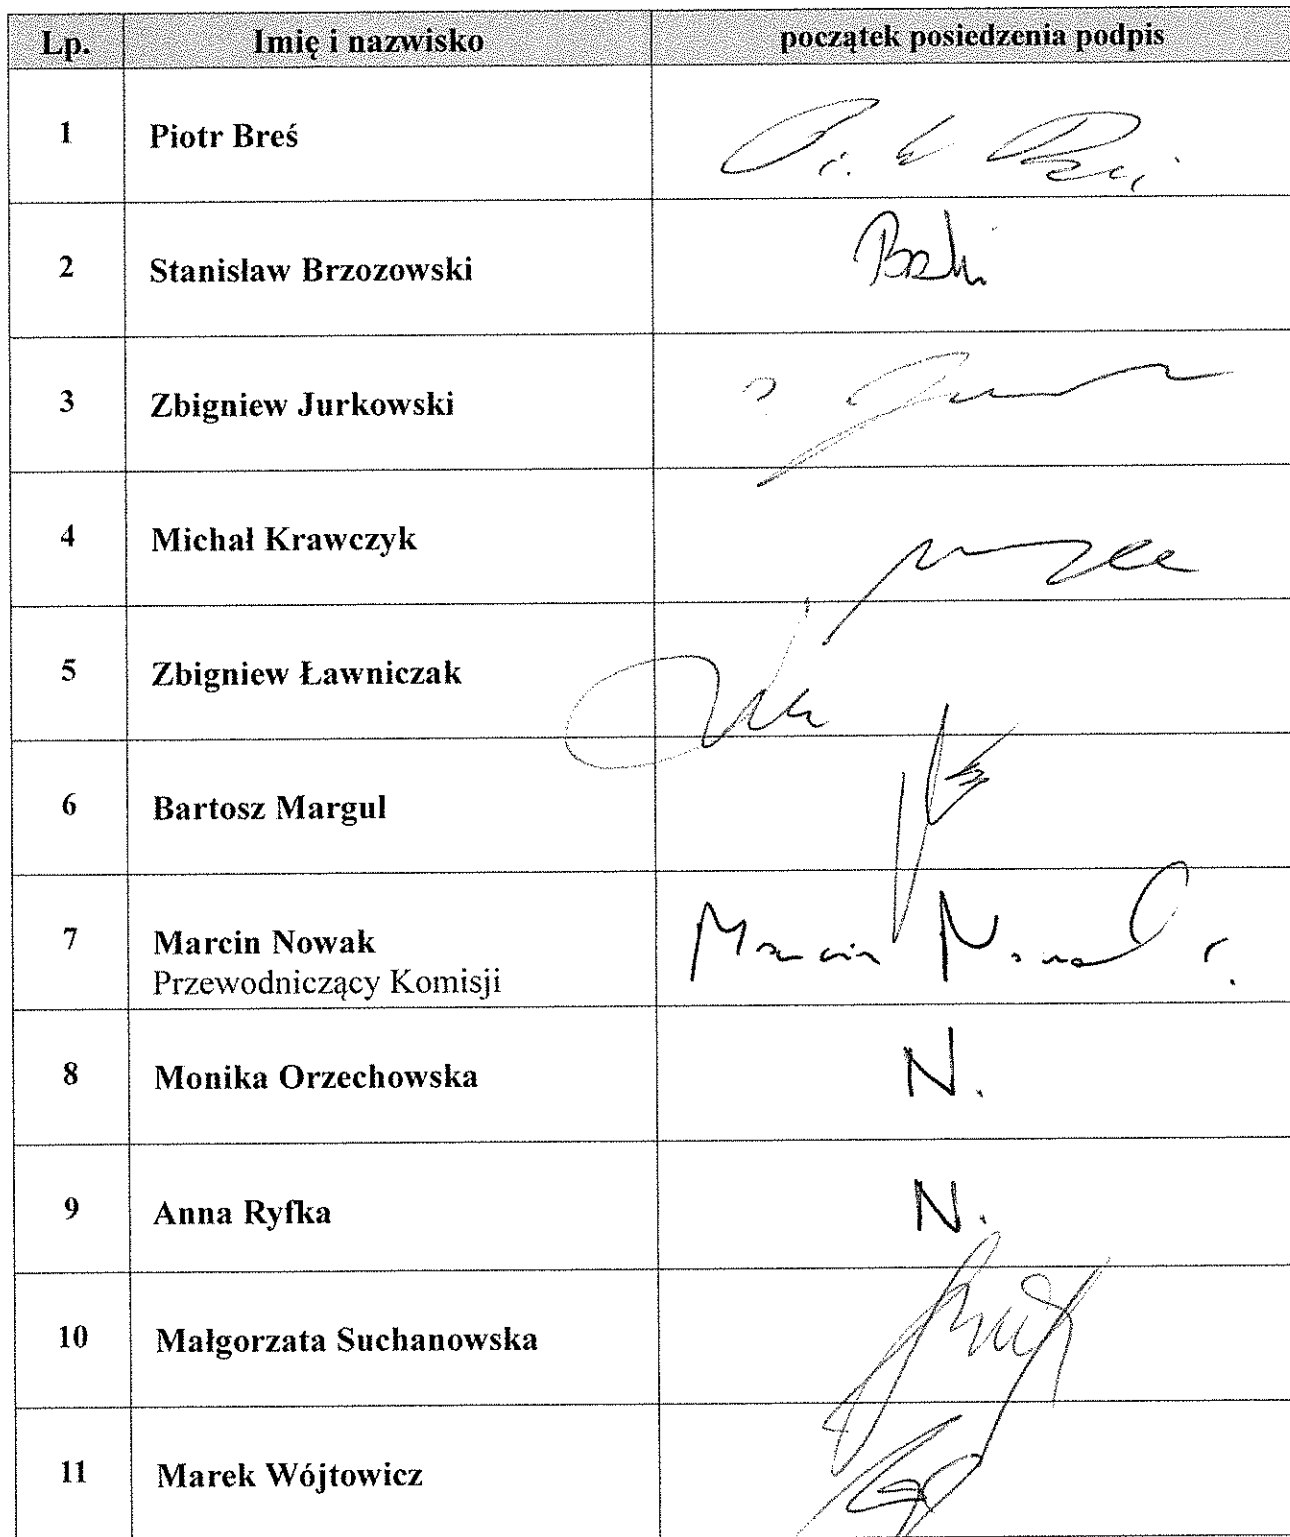 Lp. Imię i nazwisko początek posiedzenia podpis
1 Piotr Breś
2 Stanisław Brzozowski
3 Zbigniew Jurkowski
4 Michał Krawczyk
5 Zbigniew Ławniczak
6 Bartosz Margul
7 Marcin Nowak Marcin Nowak
Przewodniczący Komisji
8 Monika Orzechowska N.
9 Anna Ryfka N.
10 Małgorzata Suchanowska
11 Marek Wójtowicz